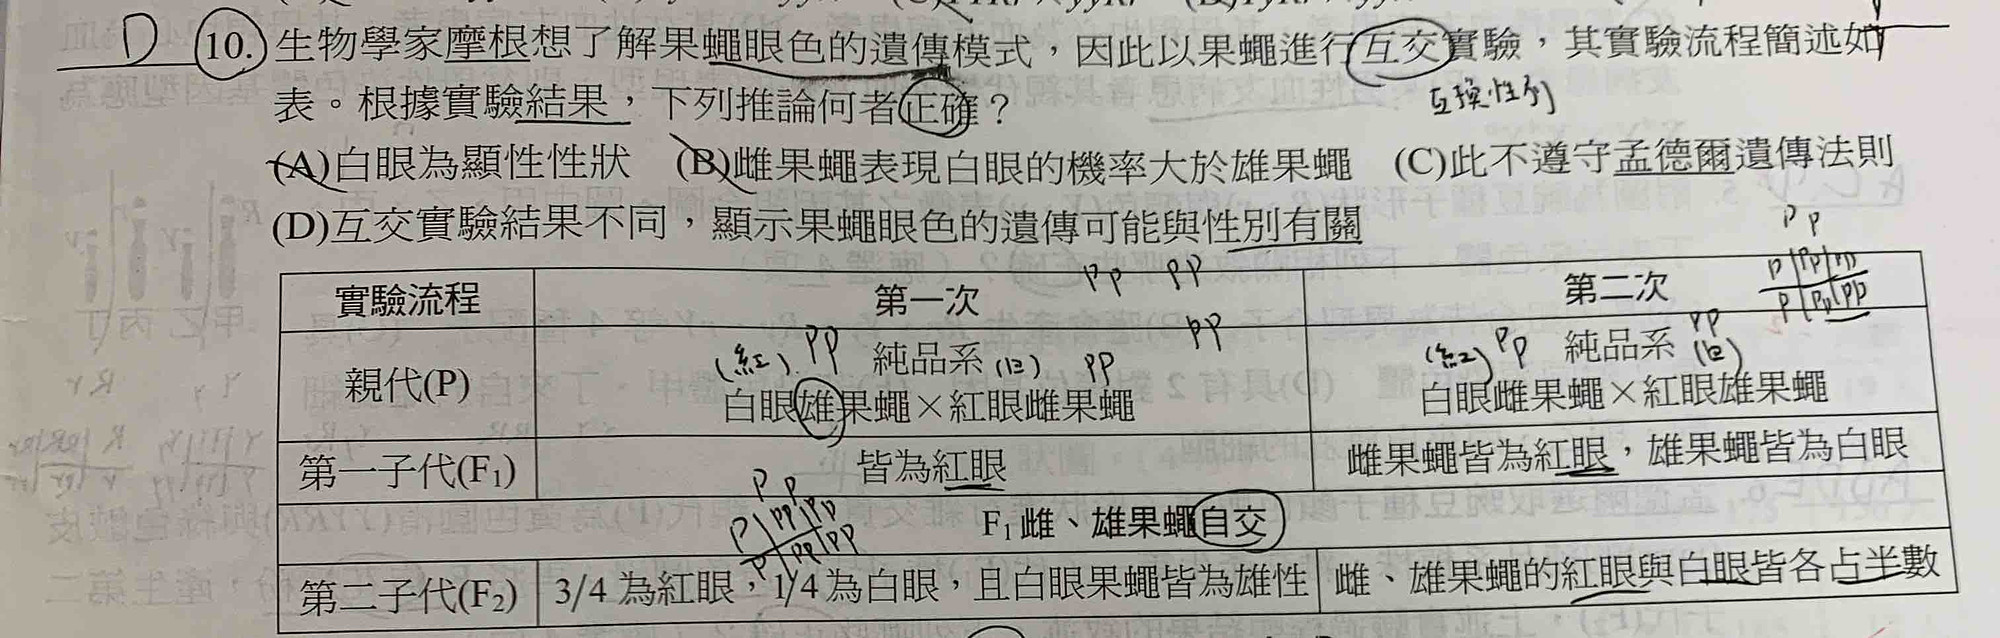 D 10. 生物學家摩根想了解果蠅眼色的遺傳模式，因此以果蠅進行互交實驗，其實驗流程簡述如
表。根據實驗結果，下列推論何者正確？
互換性別
(A)白眼為顯性性狀 (B)雌果蠅表現白眼的機率大於雄果蠅 (C)此不遵守孟德爾遺傳法則
(D)互交實驗結果不同，顯示果蠅眼色的遺傳可能與性別有關
實驗流程 第一次 第二次
親代(P) (紅) PP 純品系 (白) pp (紅) Pp 純品系 (白) pp
白眼雄果蠅×紅眼雌果蠅 白眼雌果蠅×紅眼雄果蠅
第一子代(F₁) 皆為紅眼 雌果蠅皆為紅眼，雄果蠅皆為白眼
F₁ 雌、雄果蠅自交
第二子代(F₂) 3/4 為紅眼，1/4 為白眼，且白眼果蠅皆為雄性 雌、雄果蠅的紅眼與白眼皆各占半數